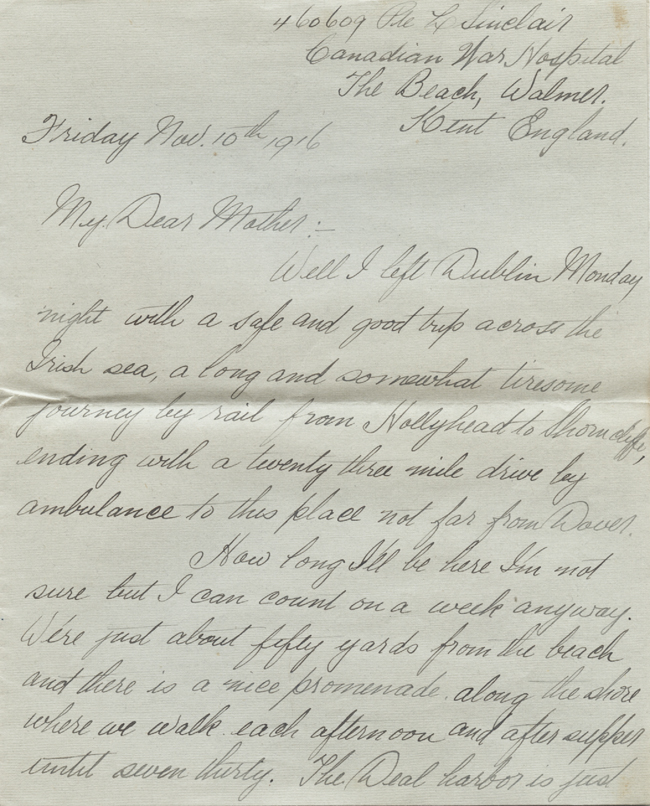 460609 Pte L Sinclair
Canadian War Hospital
The Beach, Walmer.
Kent England.
Friday Nov. 10th 1916
My Dear Mother:-
Well I left Dublin Monday
night with a safe and good trip across the
Irish sea, a long and somewhat tiresome
journey by rail from Hollyhead to Shorncliffe,
ending with a twenty three mile drive by
ambulance to this place not far from Dover.
How long I'll be here I'm not
sure but I can count on a week anyway.
We're just about fifty yards from the beach
and there is a nice promenade along the shore
where we walk each afternoon and after supper
until seven thirty. The Deal harbor is just